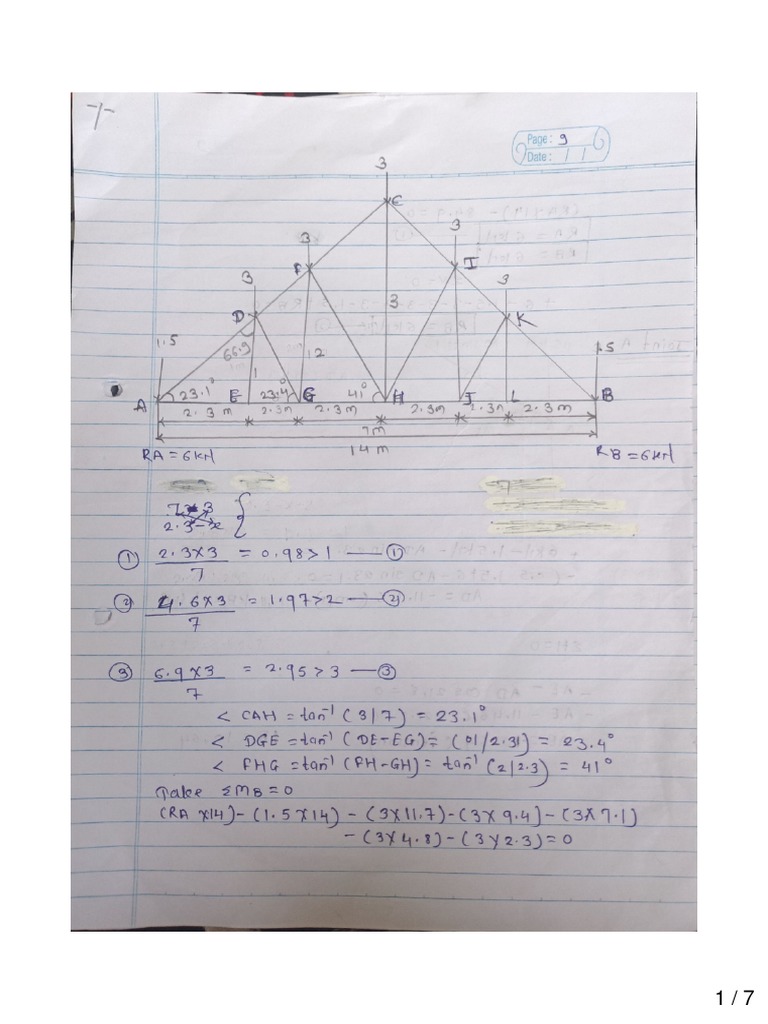 -7-
Page: 9
Date: / /
3
C
3
3
F
I
3
3
D
3
K
1.5
66.9
1
12
1.5
A
23.1°
E
23.4°
G
41°
H
J
L
B
2.3m
2.3m
2.3m
2.3m
2.3m
2.3m
7m
14m
RA = 6kN
RB = 6kN
① 2.3×3 / 7 = 0.98>1 — ①
② 4.6×3 / 7 = 1.97>2 — ②
③ 6.9×3 / 7 = 2.95>3 — ③
< CAH = tan⁻¹ (3/7) = 23.1°
< DGE = tan⁻¹ (DE-EG) = (01/2.31) = 23.4°
< FHG = tan⁻¹ (FH-GH) = tan⁻¹ (2/2.3) = 41°
Take ΣMB=0
(RA×14)-(1.5×14) - (3×11.7)-(3×9.4)-(3×7.1)
-(3×4.8)-(3×2.3)=0
1 / 7